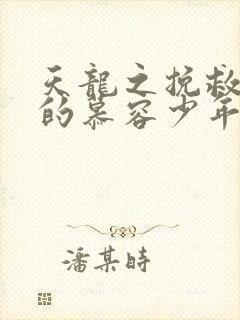 天龍之挽救
的慕容少年
潘某時